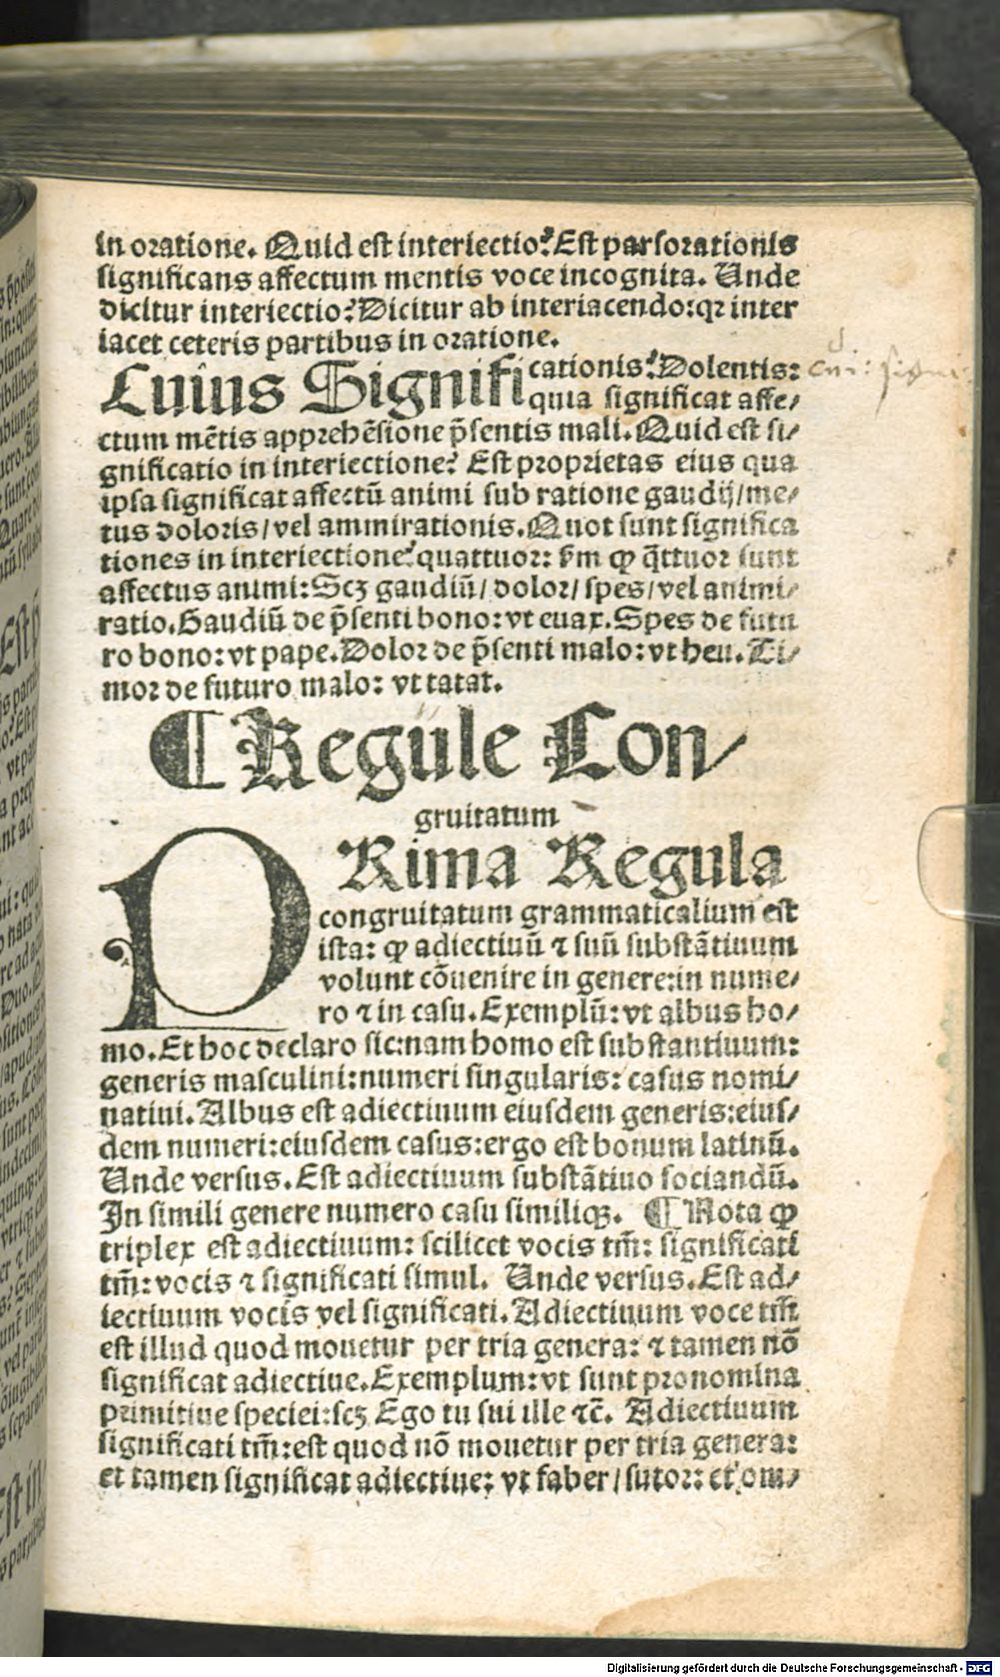 in oratione. Quid est interiectio? Est pars orationis
significans affectum mentis voce incognita. Unde
dicitur interiectio? Dicitur ab interiacendo: qꝛ inter
iacet ceteris partibus in oratione.
Cuius Signifi cationis? Dolentis:
quia significat affe/
ctum mētis apprehēsione p̄sentis mali. Quid est si/
gnificatio in interiectione? Est proprietas eius qua
ipsa significat affectū animi sub ratione gaudij/me/
tus doloris/vel ammirationis. Quot sunt significa
tiones in interiectione? quattuor: ẜm ꝙ q̄ttuor sunt
affectus animi: Scꝫ gaudiū/dolor/spes/vel animi/
ratio. Gaudiū de p̄senti bono: vt euax. Spes de futu
ro bono: vt pape. Dolor de p̄senti malo: vt heu. Ti/
mor de futuro malo: vt tatat.
¶ Regule Con/
gruitatum
PRima Regula
congruitatum grammaticalium est
ista: ꝙ adiectiuū ⁊ suū substātiuum
volunt cōuenire in genere: in nume/
ro ⁊ in casu. Exemplū: vt albus ho/
mo. Et hoc declaro sic: nam homo est substantiuum:
generis masculini: numeri singularis: casus nomi/
natiui. Albus est adiectiuum eiusdem generis: eius/
dem numeri: eiusdem casus: ergo est bonum latinū.
Unde versus. Est adiectiuum substātiuo sociandū.
In simili genere numero casu similiqꝫ. ¶ Nota ꝙ
triplex est adiectiuum: scilicet vocis tm̄: significati
tm̄: vocis ⁊ significati simul. Unde versus. Est ad/
iectiuum vocis vel significati. Adiectiuum voce tm̄
est illud quod mouetur per tria genera: ⁊ tamen nō
significat adiectiue. Exemplum: vt sunt pronomina
primitiue speciei: scꝫ Ego tu sui ille ⁊c̄. Adiectiuum
significati tm̄: est quod nō mouetur per tria genera:
et tamen significat adiectiue: vt faber/sutor: et om/
Digitalisierung gefördert durch die Deutsche Forschungsgemeinschaft - DFG